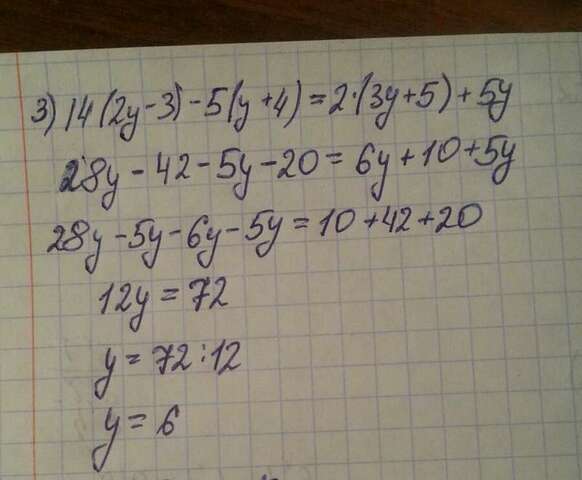 3) 14(2y-3)-5(y+4)=2·(3y+5)+5y
28y-42-5y-20=6y+10+5y
28y-5y-6y-5y=10+42+20
12y=72
y=72:12
y=6